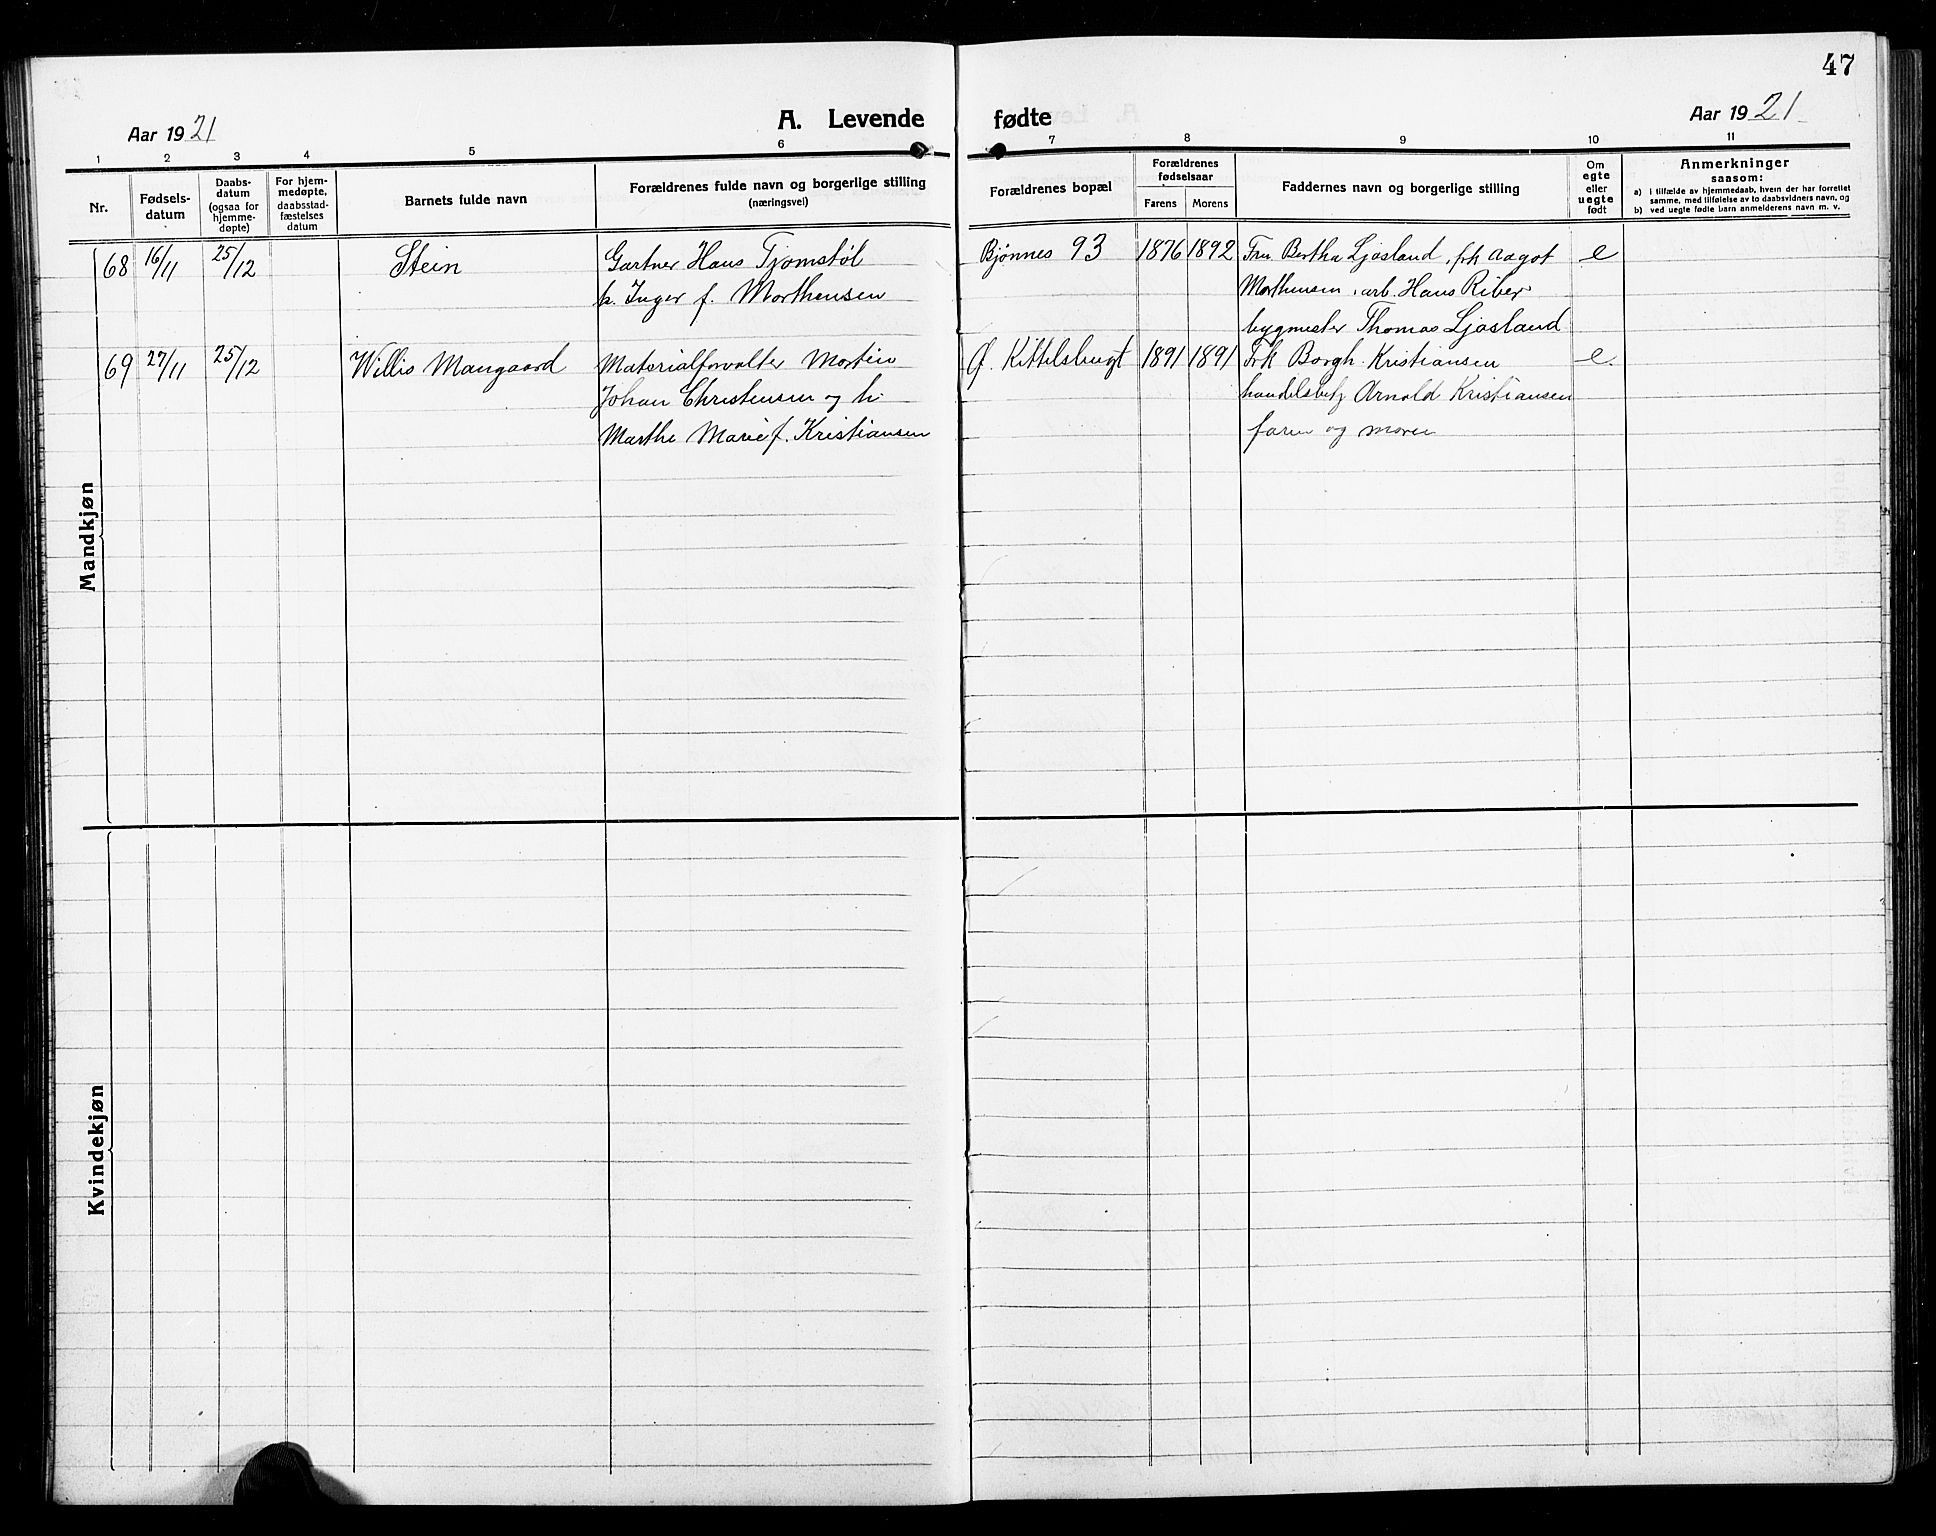 47
Aar 1921
A. Levende fødte
Aar 1921
1 2 3 4 5 6 7 8 9 10 11
Nr.
Fødsels-
datum
Daabs-
datum
(ogsaa for
hjemme-
døpte)
For hjem-
medøpte,
daabsstad-
fæstelses
datum
Barnets fulde navn
Forældrenes fulde navn og borgerlige stilling
(næringsvei)
Forældrenes bopæl
Forældrenes
fødselsaar
Farens Morens
Faddernes navn og borgerlige stilling
Om
egte
eller
uegte
født
Anmerkninger
saasom:
a) i tilfælde av hjemmedaab, hvem der har forrettet
samme, med tilføielse av to daabsvidners navn, og
b) ved uegte fødte barn anmelderens navn m. v.
Mandkjøn
68 16/11 25/12 Stein
Gartner Hans Tjomstøl
h. Inger f. Morthensen
Bjønnes 93 1876 1892
Fru Bertha Ljosland, frk Aagot
Morthensen, arb. Hans Riber
bygmester Thomas Ljosland
e
69 27/11 25/12 Willis Mangaard
Materialforvalter Mortin
Johan Christensen og h.
Marthe Marie f. Kristiansen
Ø. Kittelsbugt 1891 1891
Frk Borgh. Kristiansen
handelsbetj Arnold Kristiansen
faren og moren
e.
Kvindekjøn